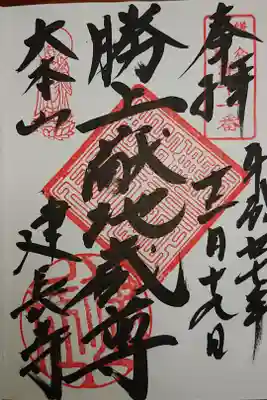 奉拝
平成廿七年
十二月十九日
勝上嶽地蔵尊
大本山
建長寺